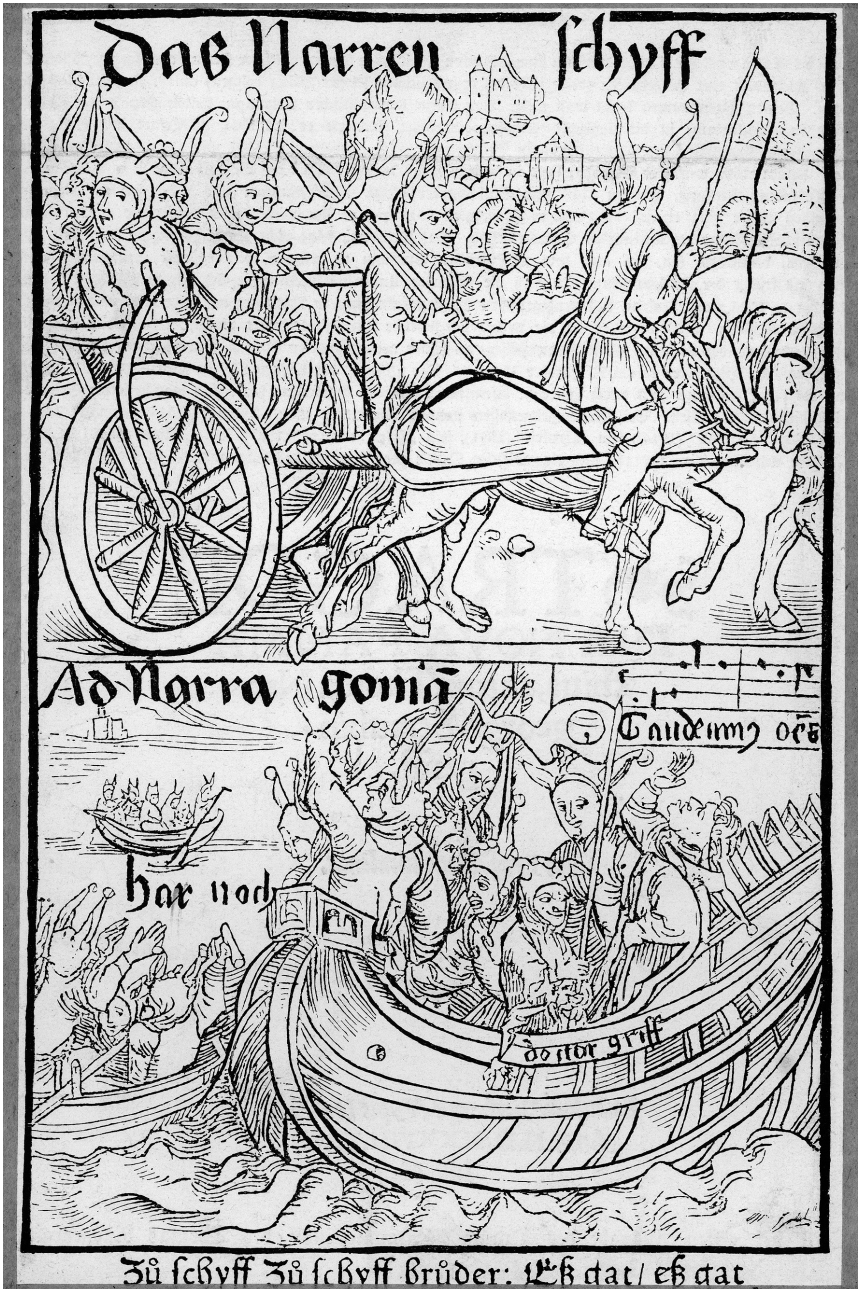 Das Narren schyff
Ad Narragoniā
Gaudeamus oēs
har noch
doctor griff
Zů schyff Zů schyff brůder: Eß gat/ eß gat